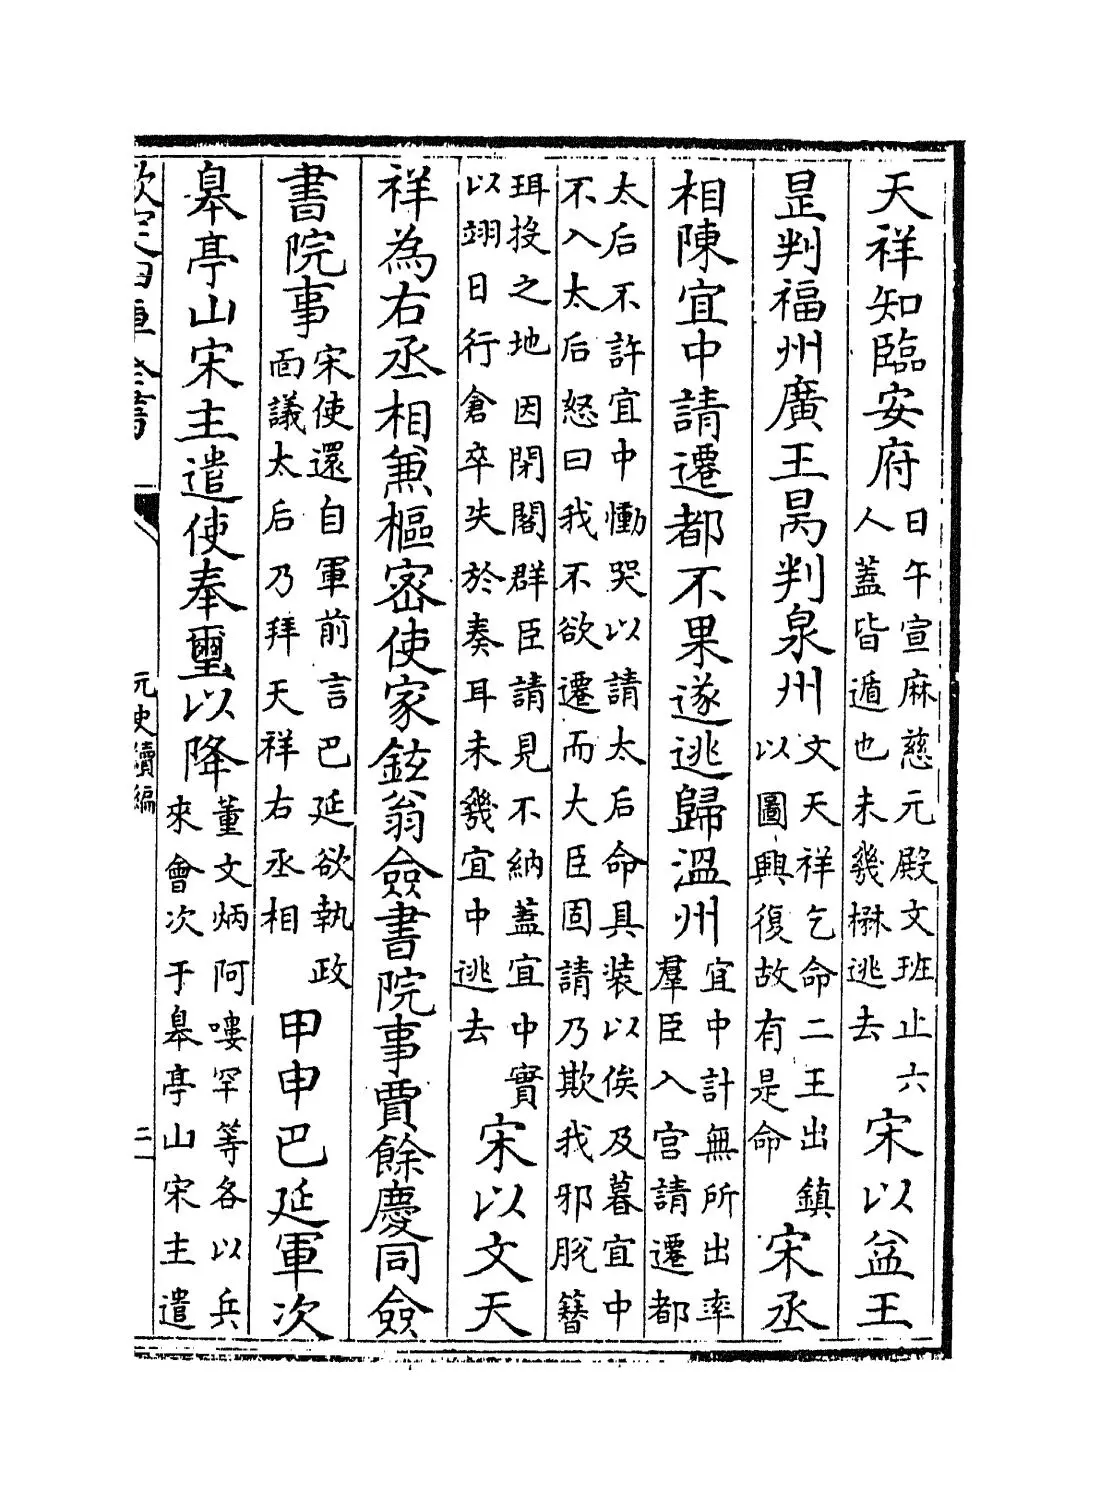 天祥知臨安府日午宣麻慈元殿文班止六人蓋皆遁也未幾楙逃去宋以益王
昰判福州廣王昺判泉州文天祥乞命二王出鎮以圖興復故有是命宋丞
相陳宜中請遷都不果遂逃歸溫州宜中計無所出率羣臣入宫請遷都
太后不許宜中慟哭以請太后命具装以俟及暮宜中不入太后怒曰我不欲遷而大臣固請乃欺我邪脫簪
珥投之地因閉閣群臣請見不納蓋宜中實以翊日行倉卒失於奏耳未幾宜中逃去宋以文天
祥為右丞相兼樞密使家鉉翁僉書院事賈餘慶同僉
書院事宋使還自軍前言巴延欲執政面議太后乃拜天祥右丞相甲申巴延軍次
臯亭山宋主遣使奉璽以降董文炳阿嘍罕等各以兵來會次于臯亭山宋主遣
欽定四庫全書 元史續編 二